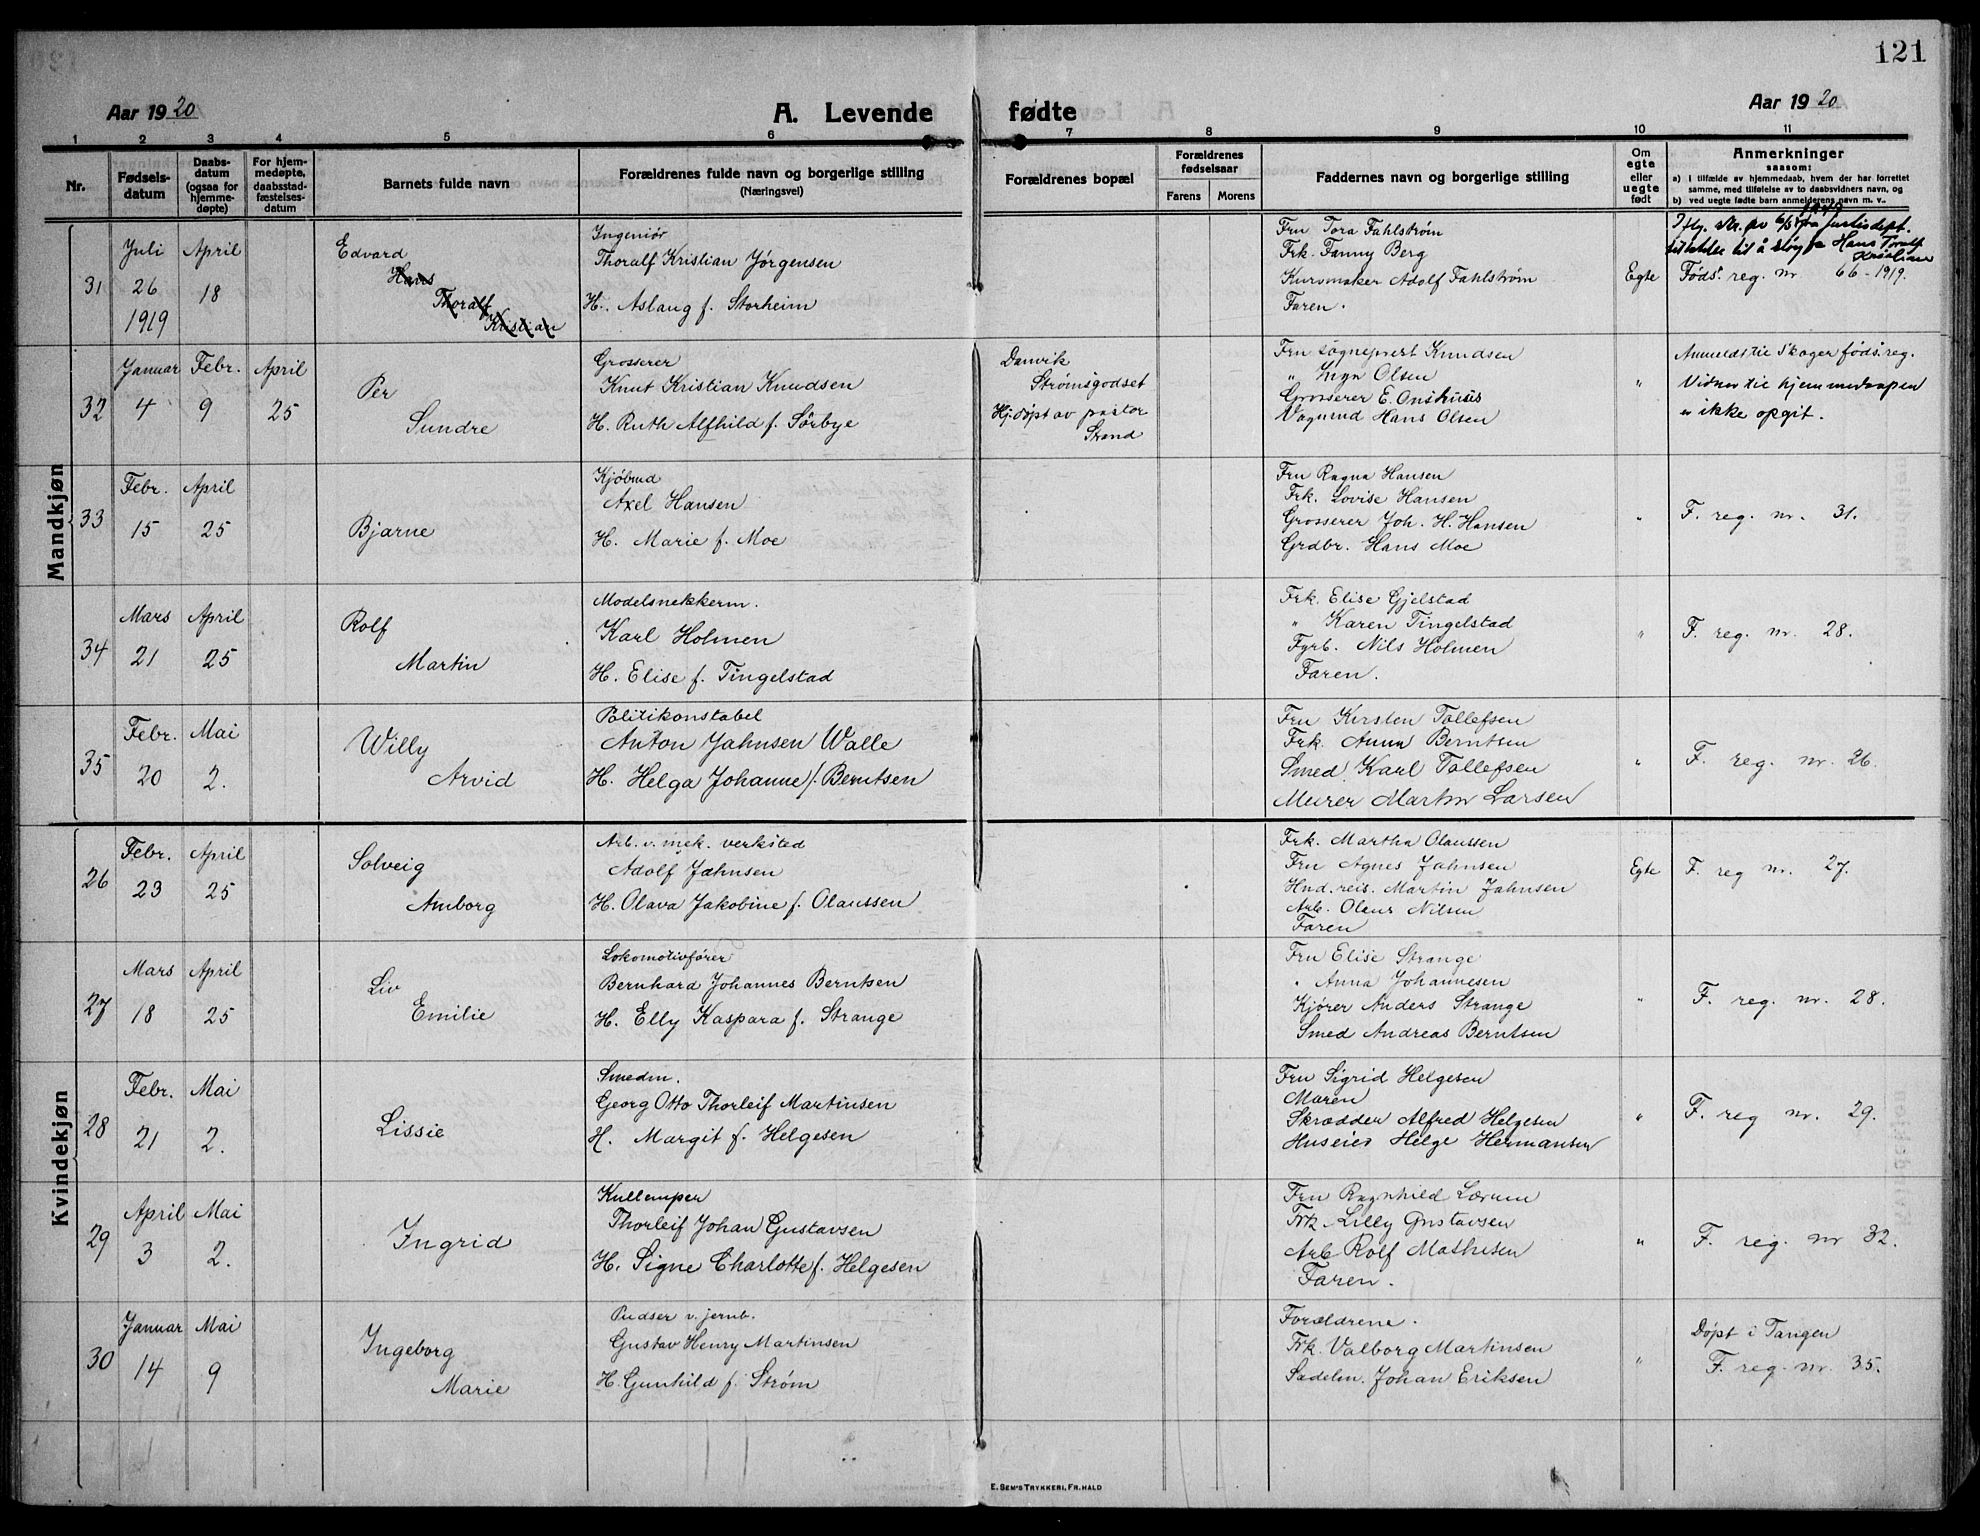 121
Aar 1920
A. Levende fødte
Aar 1920
1 2 3 4 5 6 7 8 9 10 11
Nr.
Fødselsdatum
Daabsdatum (ogsaa for hjemmedøpte)
For hjemmedøpte, daabsstadfæstelsesdatum
Barnets fulde navn
Forældrenes fulde navn og borgerlige stilling
(Næringsvei)
Forældrenes bopæl
Forældrenes fødselsaar
Farens Morens
Faddernes navn og borgerlige stilling
Om egte eller uegte født
Anmerkninger
saasom:
a) I tilfælde av hjemmedaab, hvem der har forrettet
samme, med tilføielse av to daabsvidners navn, og
b) ved uegte fødte barn anmelderens navn m. v..
Mandkjøn
31
Juli 26 1919
April 18
Edvard
Hans
Thoralf
Kristian
Ingeniør
Thoralf Kristian Jørgensen
H. Aslaug f. Storheim
Fru Tora Fahlstrøm
Frk. Fanny Berg
Kurvmaker Adolf Fahlstrøm
Faren.
Egte
1940
Iflg. skr. av 6/5 fra Justisdept.
tillatelse til å sløyfe Hans Toralf
Kristian
Føds. reg. nr 66-1919.
32
Januar 4
Febr. 9
April 25
Per
Sundre
Grosserer
Knut Kristian Knudsen
H. Ruth Alfhild f. Sørbye
Danvik
Strømsgodset
Hj. døpt av pastor
Strand
Fru sogneprest Knudsen
" Olsen
Grosserer E. Onshuus
Vognmd Hans Olsen
"
Anmeldt til Skoger føds. reg.
Vidner til hjemmedaapen
er ikke opgit.
33
Febr. 15
April 25
Bjarne
Kjøbmd
Axel Hansen
H. Marie f. Moe
Fru Ragna Hansen
Frk. Lovise Hansen
Grosserer Joh. H. Hansen
Grdbr. Hans Moe
"
F. reg. nr. 31.
34
Mars 21
April 25
Rolf
Martin
Modelsnekkerm.
Karl Holmen
H. Elise f. Tingelstad
Frk. Elise Gjelstad
" Karen Tingelstad
Fyrb. Nils Holmen
Faren.
"
F. reg. nr. 28.
35
Febr. 20
Mai 2.
Willy
Arvid
Politikonstabel
Anton Jahnsen Walle
H. Helga Johanne f. Berntsen
Fru Kirsten Tollefsen
Frk. Anna Berntsen
Smed Karl Tollefsen
Murer Martin Larsen
"
F. reg. nr. 26.
Kvindekjøn
26
Febr. 23
April 25
Solveig
Amborg
Arb. v. mek. verksted
Adolf Jahnsen
H. Olava Jakobine f. Olaussen
Frk. Martha Olaussen
Fru Agnes Jahnsen
Hnd. reis. Martin Jahnsen
Arb. Olaus Nilsen
Faren
Egte
F. reg nr. 27.
27
Mars 18
April 25
Liv
Emilie
Lokomotivfører
Bernhard Johannes Berntsen
H. Elly Kaspara f. Strange
Fru Elise Strange
" Anna Johannesen
Kjører Anders Strange
Smed Andreas Berntsen
"
F. reg. nr. 28.
28
Febr. 21
Mai 2.
Lissie
Smedm.
Georg Otto Thorleif Martinsen
H. Margit f. Helgesen
Fru Sigrid Helgesen
Moren
Skrædder Alfred Helgesen
Huseier Helge Hermansen
"
F. reg nr. 29.
29
April 3
Mai 2.
Ingrid
Kullemper
Thorleif Johan Gustavsen
H. Signe Charlotte f. Helgesen
Fru Ragnhild Lærum
Frk Lilly Gustavsen
Arb Rolf Mathisen
Faren.
"
F. reg. nr 32.
30
Januar 14
Mai 9
Ingeborg
Marie
Pudser v. jernb.
Gustav Henry Martinsen
H. Gunhild f. Strøm
Forældrene.
Frk. Valborg Martinsen
Sadelm. Johan Eriksen
"
Døpt i Tangen
F. reg. nr. 35.
E. SEM'S TRYKKERI, FR.HALD